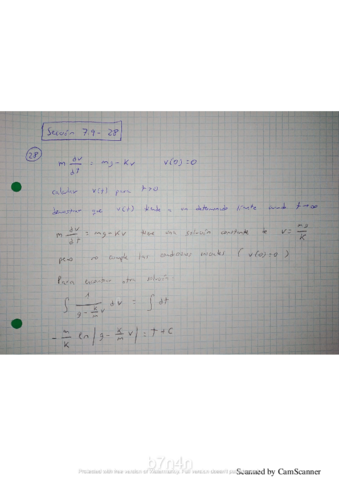 Sección 7.9 - 28
28
m dv/dt = mg - Kv    v(0)=0
calcular v(t) para t>0
demostrar que v(t) tiende a un determinado límite cuando t→∞
m dv/dt = mg - Kv tiene una solución constante v = mg/K
pero no cumple las condiciones iniciales ( v(0)=0 )
Para encontrar otra solución:
∫ 1/(g - K/m v) dv = ∫ dt
- m/K ln|g - K/m v| = t + C
b7n4n
Scanned by CamScanner